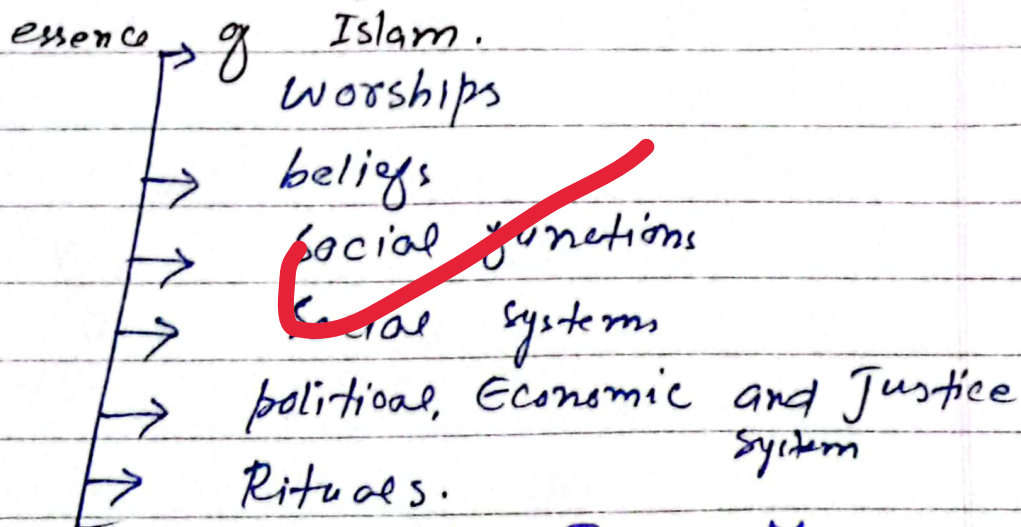 essence of Islam.
worships
beliefs
Social functions
Social systems
political, Economic and Justice
system
Rituals.